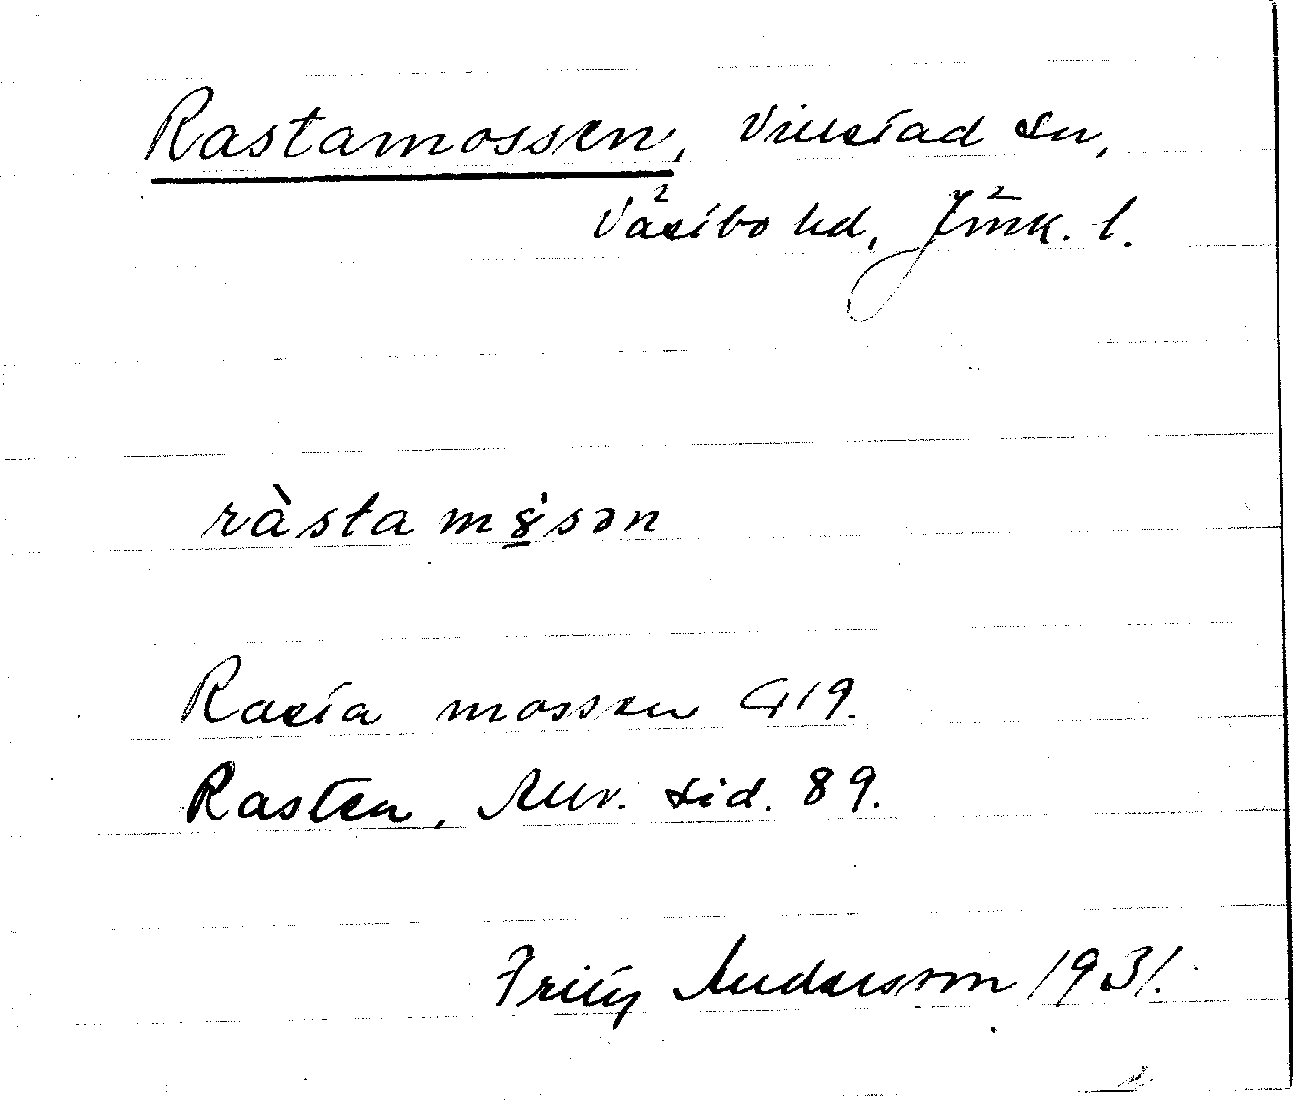 Rastamossen, Villstad sn,
Västbo hd, Jönk. l.
ràstamo̤sən
Rasta mossen G19.
Rasten, Auv. sid. 89.
Fritz Andersson 1931.